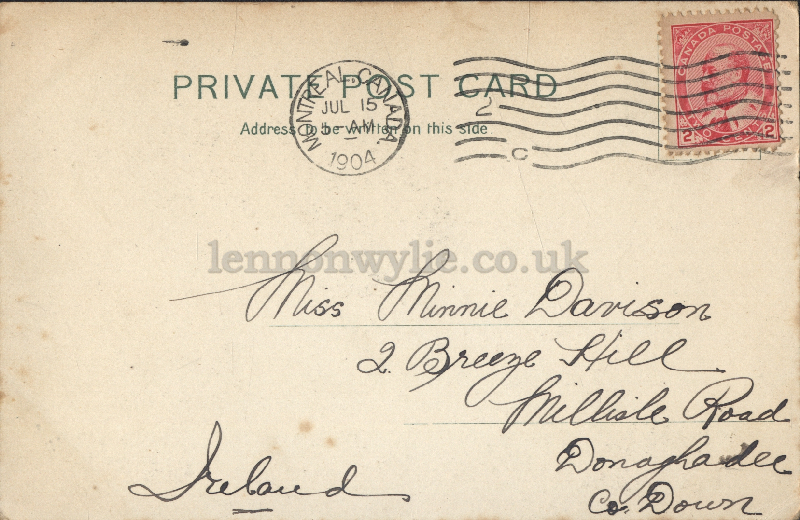 PRIVATE POST CARD
Address to be written on this side
MONTREAL, CANADA
JUL 15
5-AM
1904
2
C
CANADA POSTAGE
2 TWO CENTS 2
lennonwylie.co.uk
Miss Minnie Davison
2. Breeze Hill
Millisle Road
Donaghadee
Co. Down
Ireland